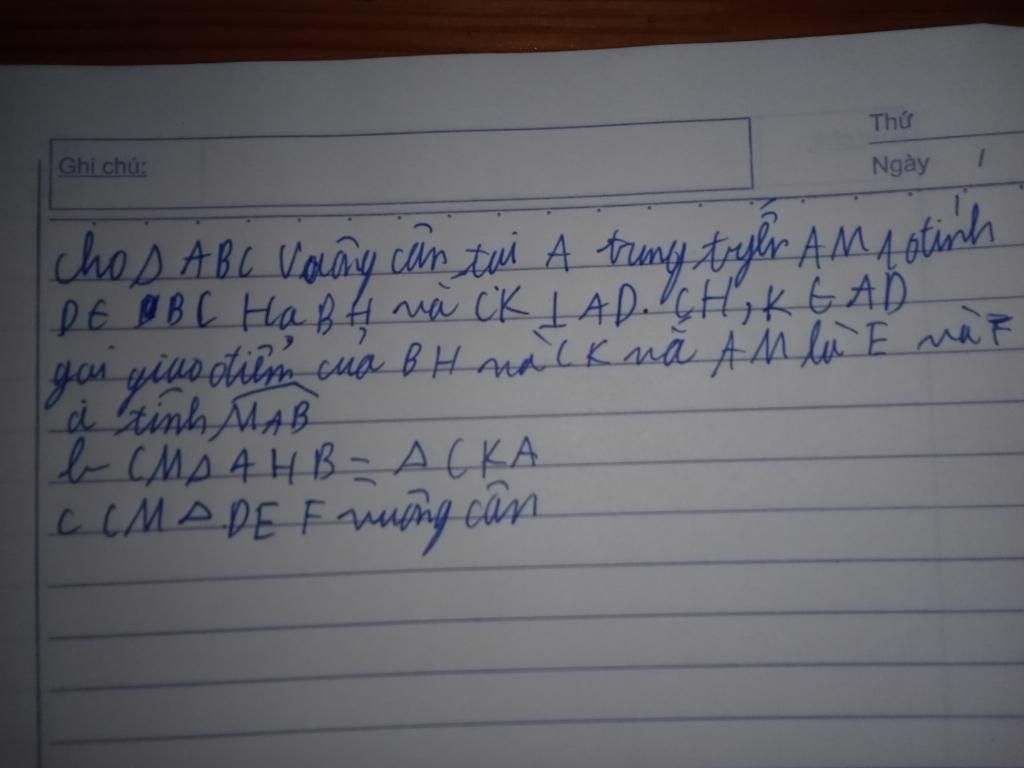 Thứ
Ghi chú:
Ngày 1
Cho Δ ABC Vuông cân tại A trung tuyến AM
DE BBC Hạ BH và CK ⊥ AD. CH, K ∈ AD
gọi giao điểm của BH và CK và AM là E và F
a tính MAB
b CM Δ AHB = Δ CKA
C CM Δ DEF vuông cân